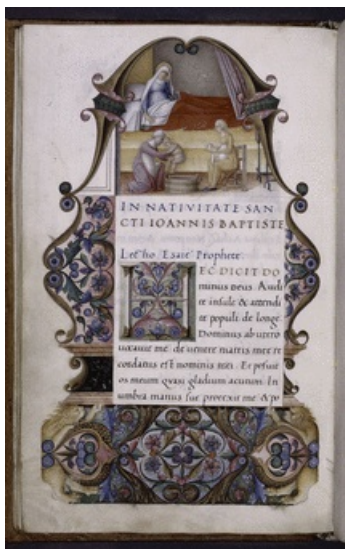 IN NATIVITATE SAN
CTI IOANNIS BAPTISTE
Lectio Esaie Prophete
HEC DICIT DO
minus Deus. Audi
te insule & attendi
te populi de longe.
Dominus ab utero
uocauit me de uentre matris mee re
cordatus est nominis mei. Et posuit
os meum quasi gladium acutum. In
umbra manus sue protexit me & po